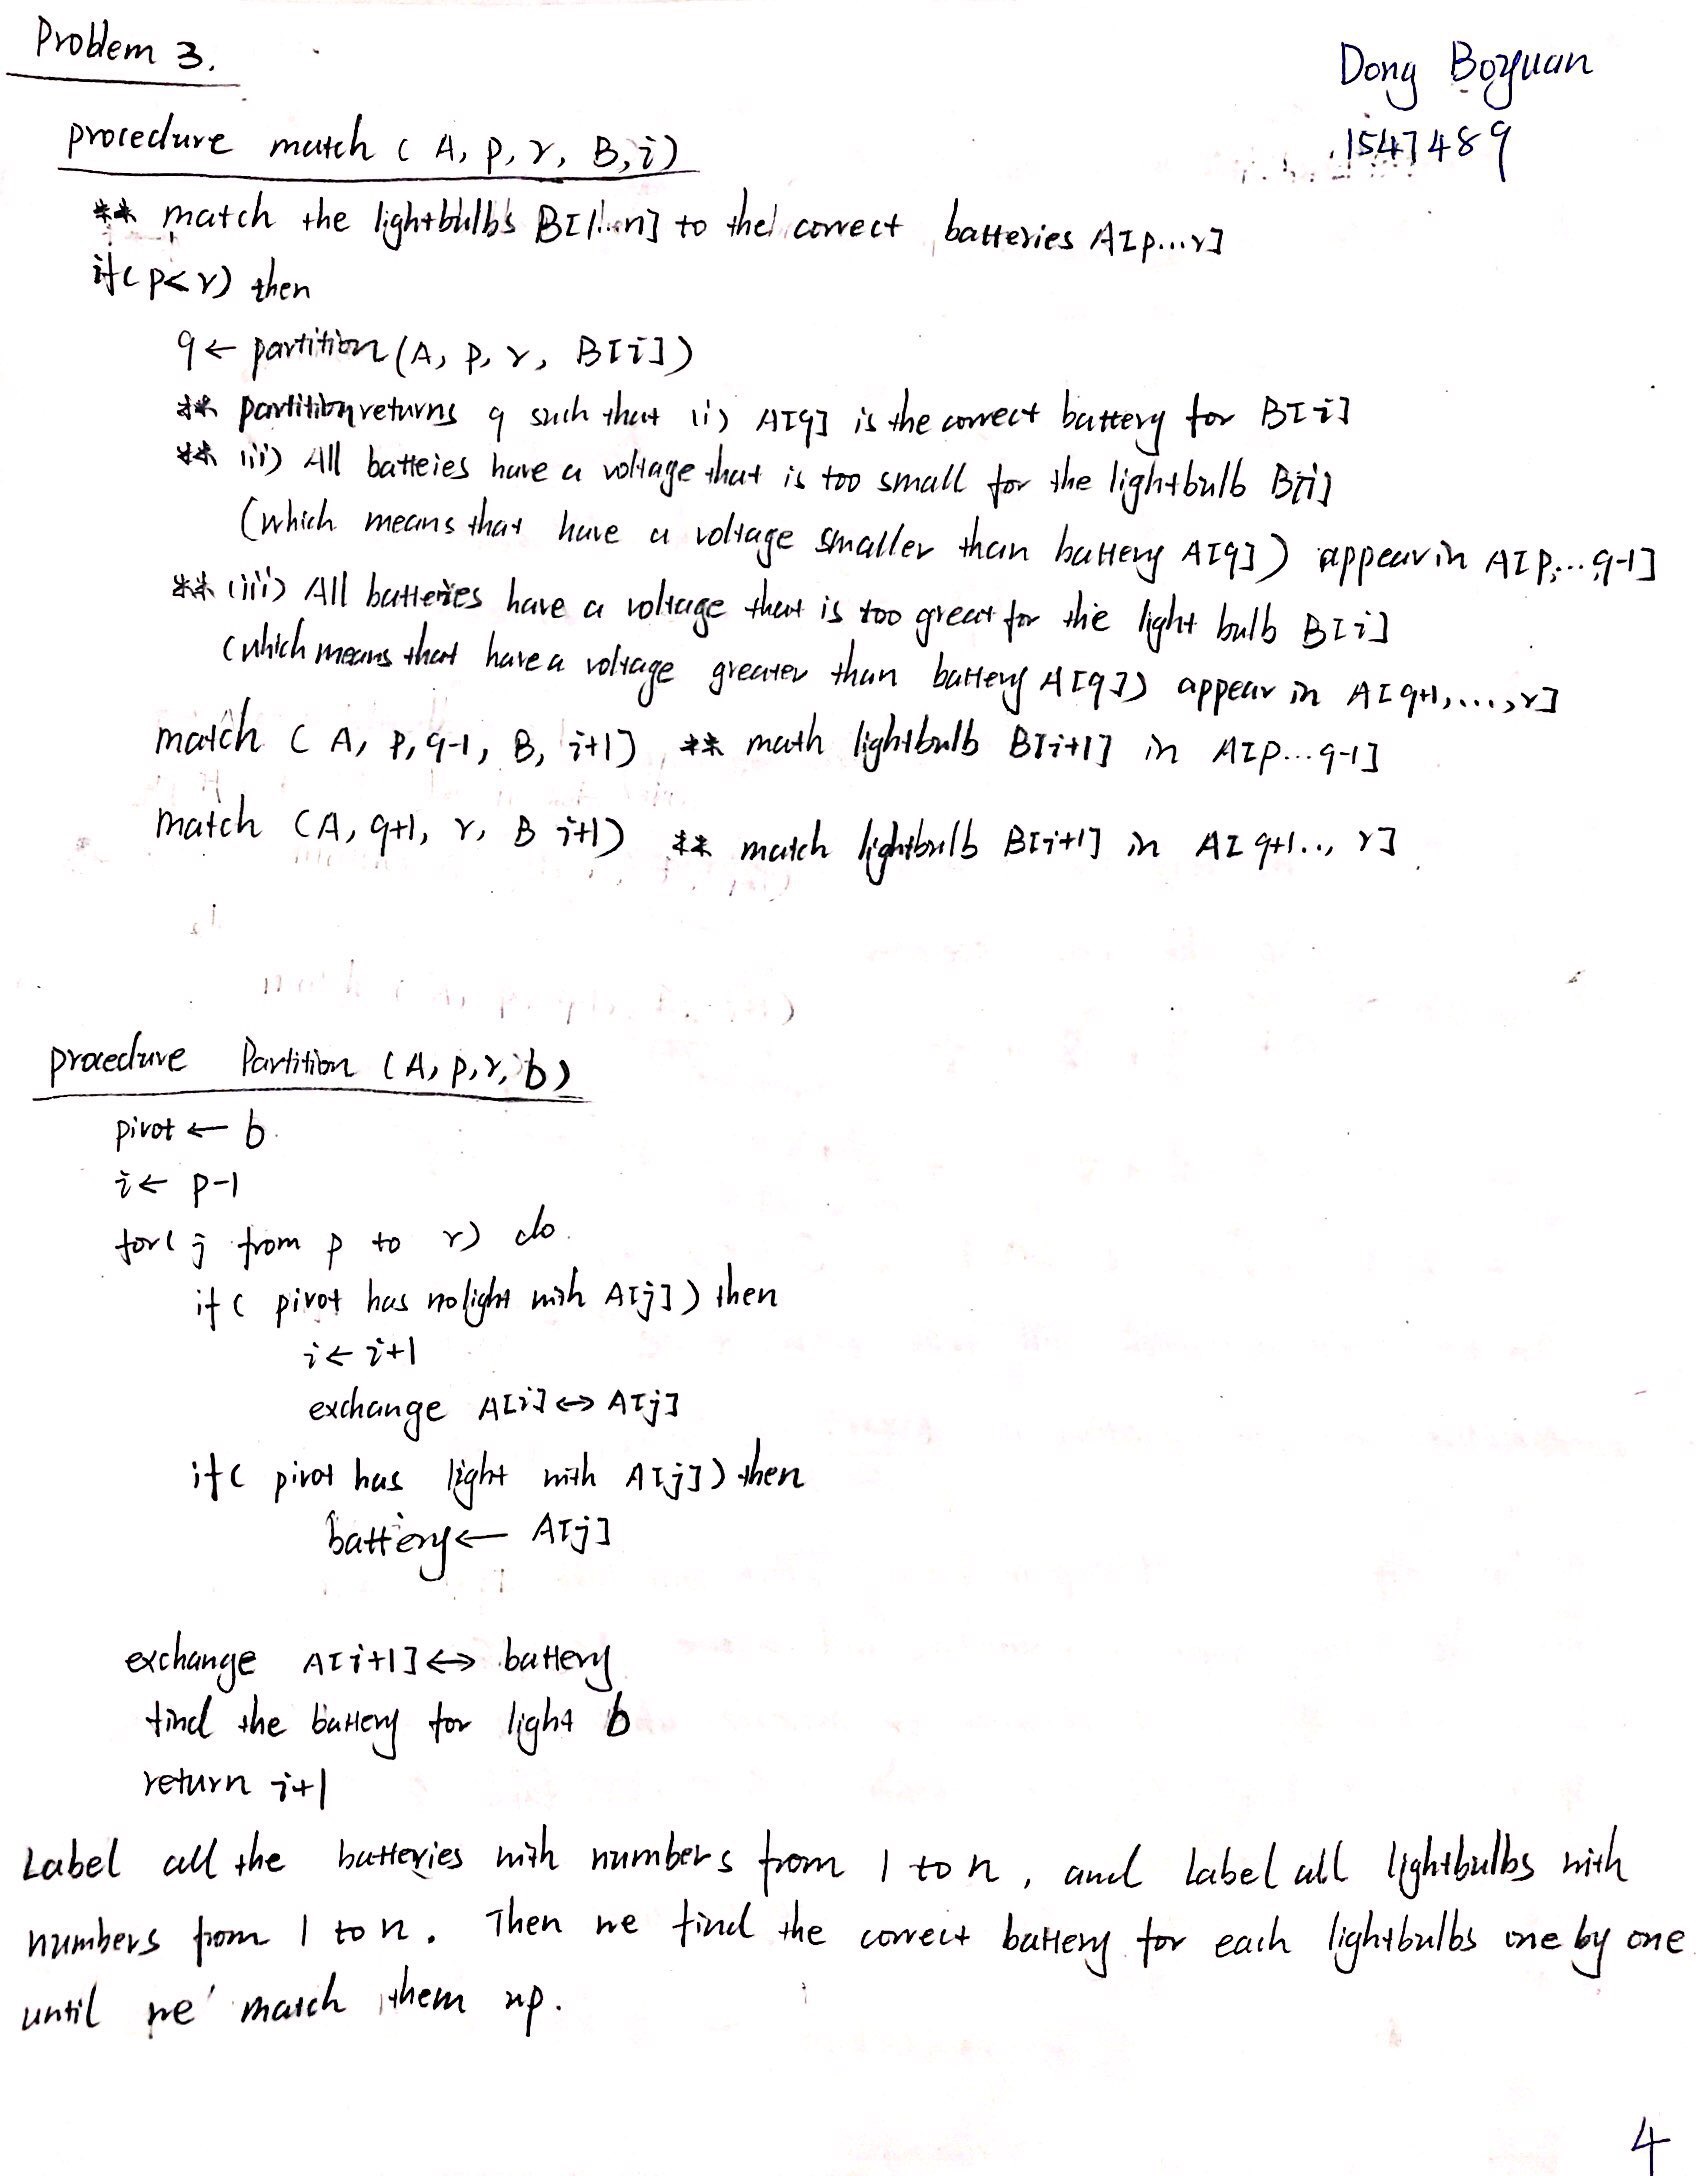 Problem 3.
Dong Boyuan
1547489
procedure match (A, p, r, B, i)
** match the lightbulbs B[1...n] to the correct batteries A[p...r]
if(p<r) then
q ← partition(A, p, r, B[i])
** partition returns q such that (i) A[q] is the correct battery for B[i]
** (ii) All batteies have a voltage that is too small for the lightbulb B[i]
(which means that have a voltage smaller than battery A[q]) appear in A[p,...q-1]
** (iii) All batteries have a voltage that is too great for the light bulb B[i]
(which means that have a voltage greater than battery A[q]) appear in A[q+1,...,r]
match (A, p, q-1, B, i+1) ** math lightbulb B[i+1] in A[p...q-1]
match (A, q+1, r, B i+1) ** match lightbulb B[i+1] in A[q+1.., r]
procedure Partition (A, p, r, b)
pivot ← b
i ← p-1
for( j from p to r) do
if( pivot has no light with A[j]) then
i ← i+1
exchange A[i] ↔ A[j]
if( pivot has light with A[j]) then
battery ← A[j]
exchange A[i+1] ↔ battery
find the battery for light b
return i+1
Label all the batteries with numbers from 1 to n, and Label all lightbulbs with
numbers from 1 to n. Then we find the correct battery for each lightbulbs one by one
until we match them up.
4